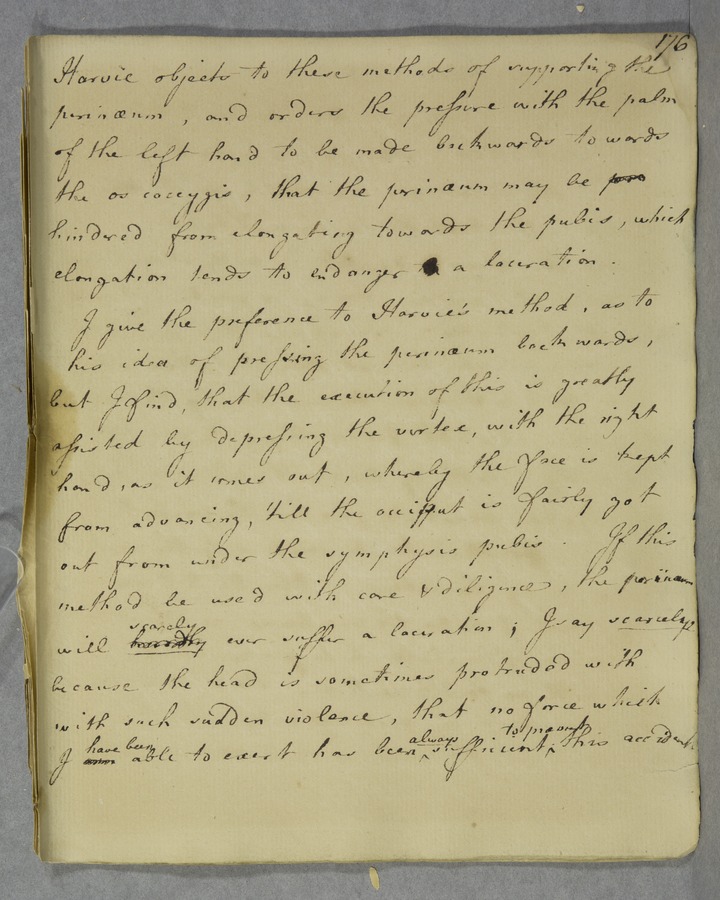 176
Harvie objects to these methods of supporting the
perinæum, and orders the pressure with the palm
of the left hand to be made backwards towards
the os coccygis, that the perinæum may be pre
hindered from elongating towards the pubis, which
elongation tends to endanger a laceration.
I give the preference to Harvie's method, as to
his idea of pressing the perinæum backwards,
but I find, that the execution of this is greatly
assisted by depressing the vertex, with the right
hand, as it comes out, whereby the face is kept
from advancing, 'till the occiput is fairly got
out from under the symphysis pubis. If this
method be used with care & diligence, the perinæum
scarcely
will hardly ever suffer a laceration; I say scarcely,
because the head is sometimes protruded with
with such sudden violence, that no force which
have been always to prevent
I am able to exert has been sufficient, this accident